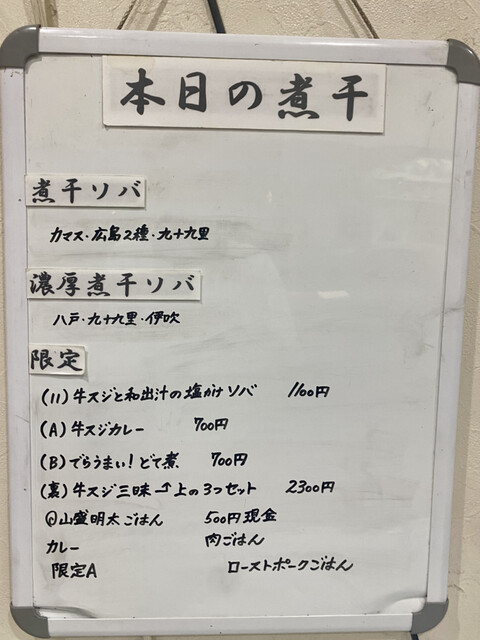 本日の煮干
煮干ソバ
カマス・広島2種・九十九里
濃厚煮干ソバ
八戸・九十九里・伊吹
限定
(11) 牛スジと和出汁の塩かけソバ 1100円
(A) 牛スジカレー 700円
(B) でらうまい!どて煮 700円
(裏) 牛スジ三昧→上の3つセット 2300円
@山盛明太ごはん 500円現金
カレー 肉ごはん
限定A ローストポークごはん